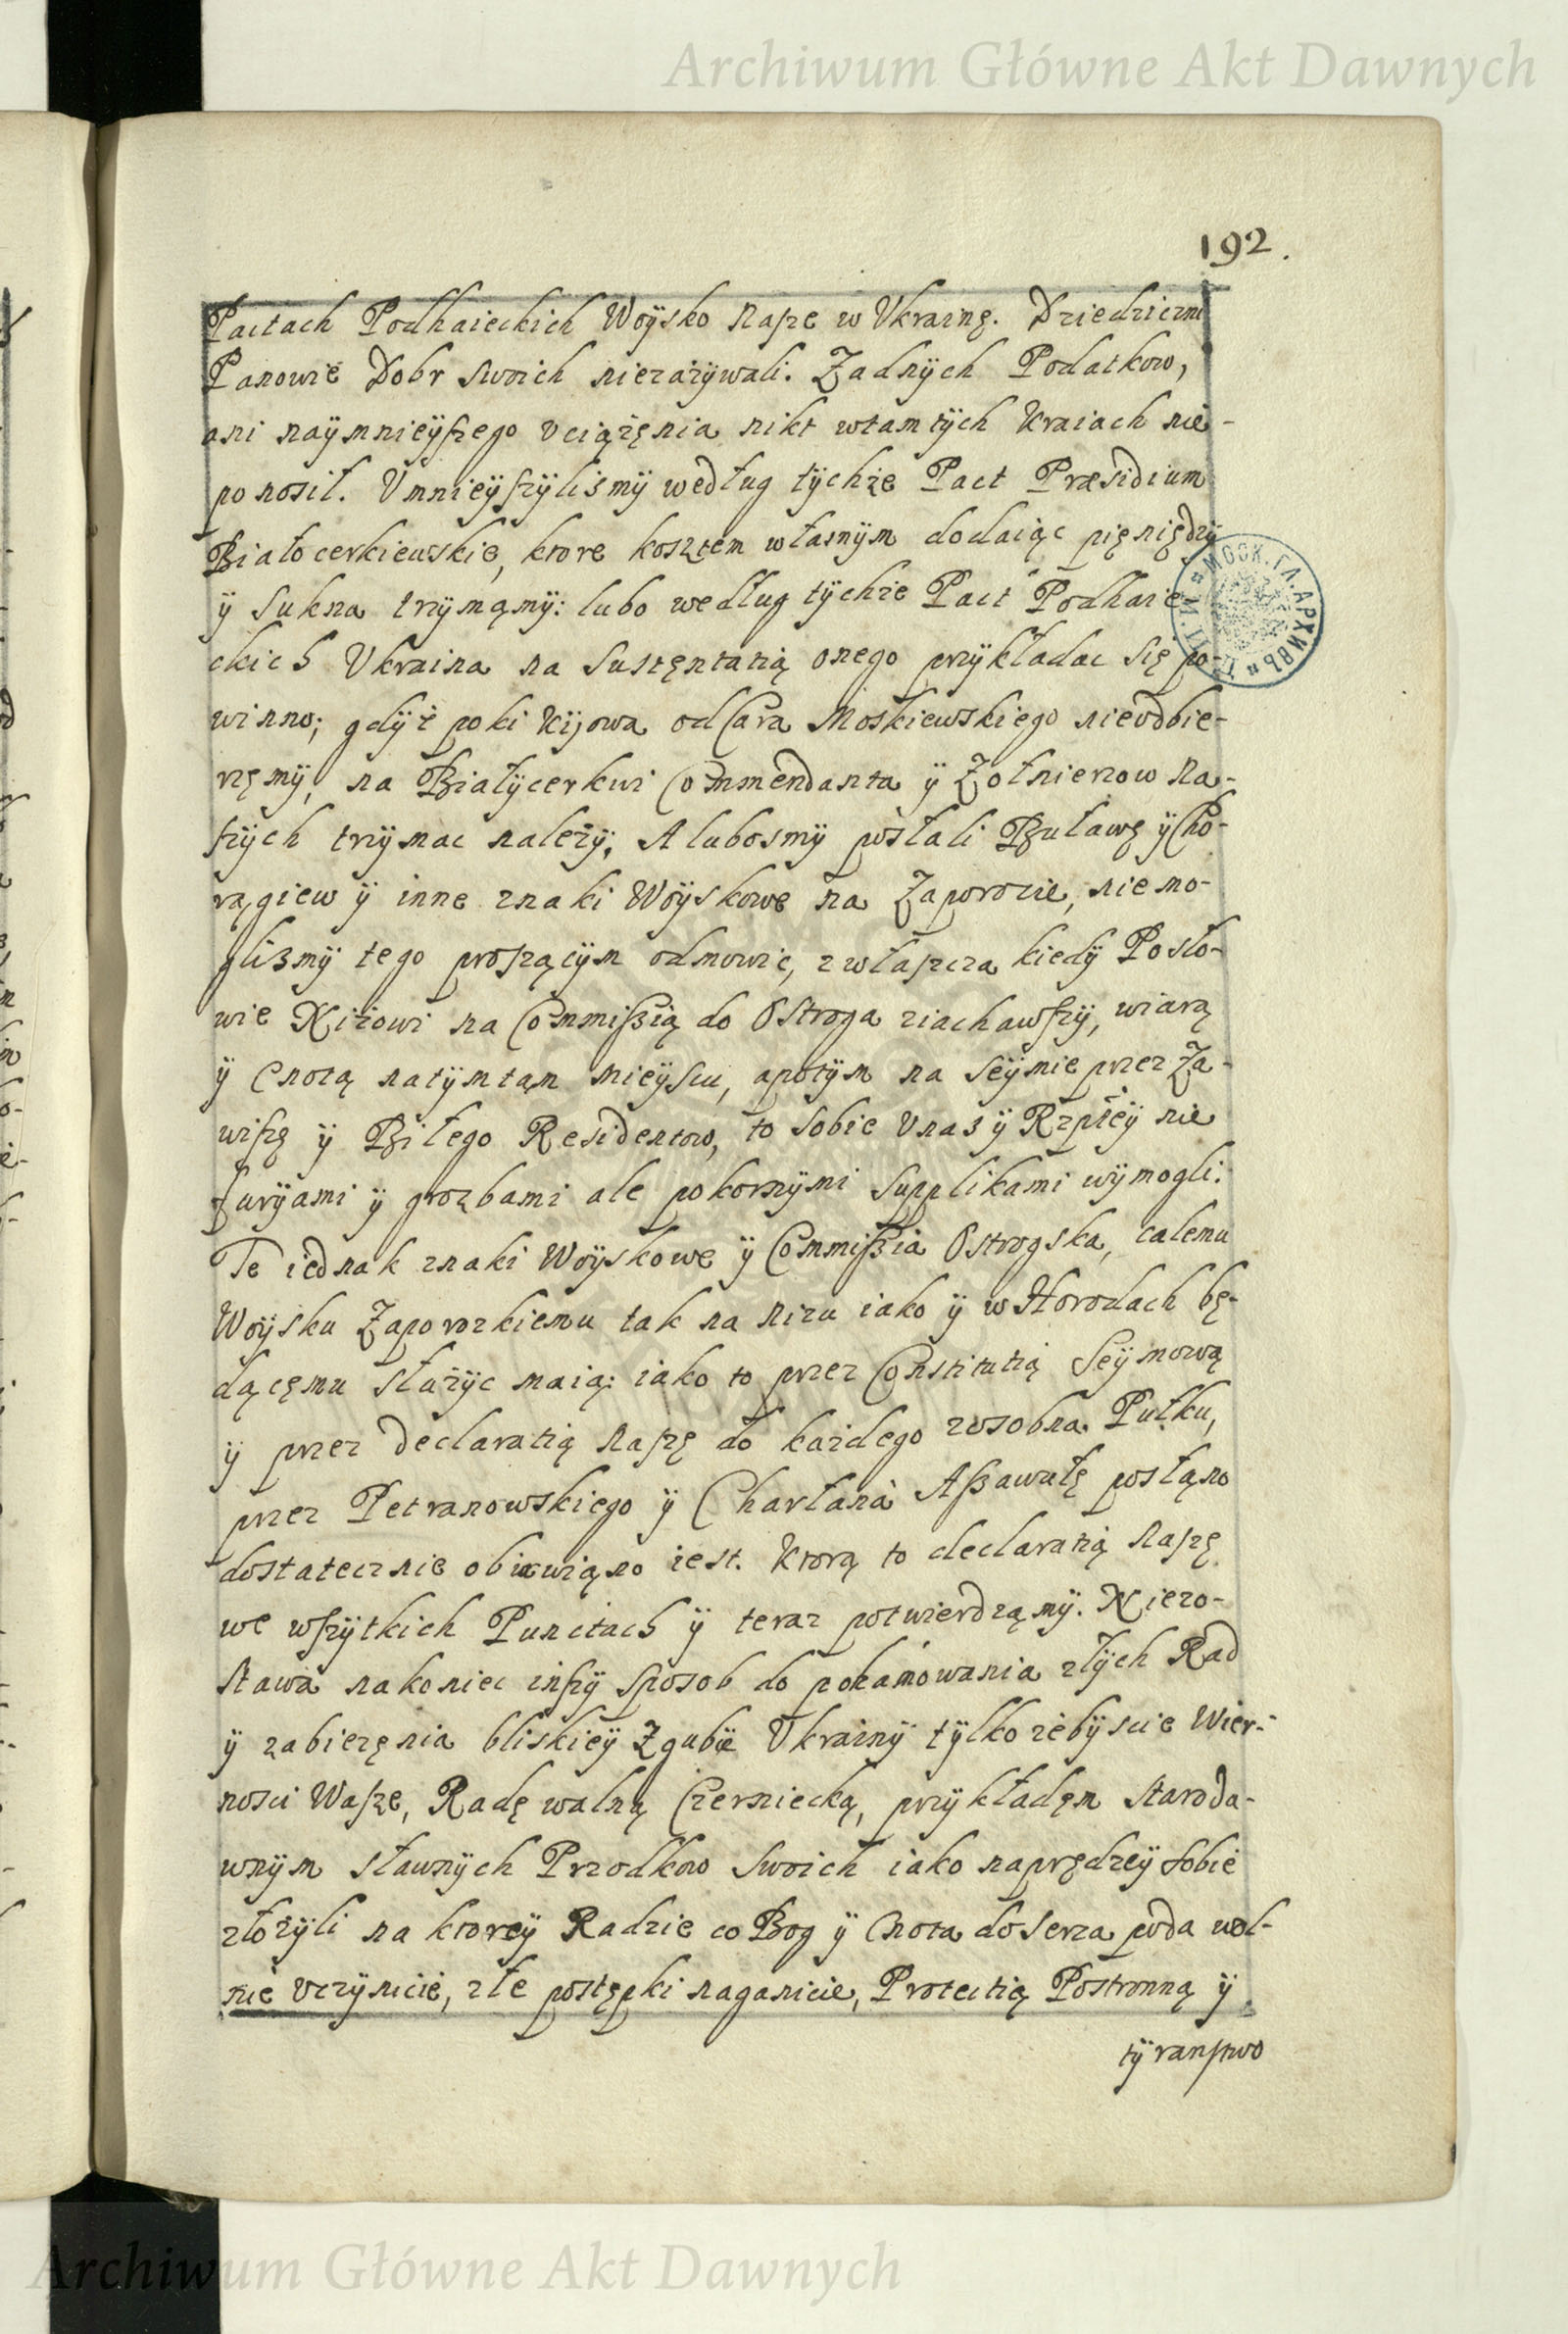 Archiwum Główne Akt Dawnych
192.
Pactach Podhaieckich Woÿsko Nasze w Vkrainę. Dziedziczni
Panowie Dobr swoich niezażÿwali. Żadnÿch Podatkow,
ani naÿmnieÿszego vciążęnia nikt wtamtÿch Kraiach nie-
ponosił. Vmnieÿszÿlismÿ według tÿchże Pact Præsidium
Białocerkiewskie, ktore kosztem własnÿm dodaiąc pięniędzÿ
ÿ sukna trzÿmąmÿ: lubo według tÿchże Pact Podhaie
ckich Vkraina na sustęntatią onego przÿkładac się po-
winno; gdÿż poki Kijowa od Cara Moskiewskiego nieodbie-
rzęmÿ, na Białÿcerkwi Commendanta ÿ Żołnierzow Na-
szÿch trzÿmac należÿ; A lubosmÿ posłali Buławę ÿ Cho-
rągiew ÿ inne znaki Woÿskowe na Zaporoże, niemo-
glismÿ tego proszącÿm odmowic, zwłaszcza kiedÿ Posło-
wie Niżowi na Commissią do Ostroga ziachawszÿ, wiarą
ÿ Cnotą natÿmtąm mieÿscu, apotÿm na seÿmie przez Za-
wiszę ÿ Biłego Residentow, to sobie v nas ÿ Rzpłeÿ nie
furÿami ÿ grozbami ale pokornÿmi supplikami wÿmogli:
Te iednak znaki Woÿskowe ÿ Commissia Ostrogska, całemu
Woÿsku Zaporozkiemu tak na nizu iako ÿ w Horodach bę-
dącęmu służÿc maią: iako to przez Constitutią Seÿmową
ÿ przez declaratią naszę do każdego zosobna Pułku,
przez Petranowskiego ÿ Charłana Assawułę posłąno
dostatecznie obiawiąno iest. Ktorą to declaratią naszę
we wszÿtkich Punctach ÿ teraz potwierdzamÿ. Niezo-
stawa nakoniec inszÿ sposob do pohamowania złÿch Rad
ÿ zabieżęnia bliskieÿ Zgubie Vkrainÿ tÿlko żebÿscie Wier-
nosci Wasze, Radę walną Czerniecką, przÿkładęm staroda-
wnÿm sławnÿch Przodkow swoich iako naprędzeÿ sobie
złożÿli na ktoreÿ Radzie co Bog ÿ Cnota do serca poda wol-
nie vczÿnicie, złe postępki naganicie, Protectią Postronną ÿ
tÿranstwo
Archiwum Główne Akt Dawnych